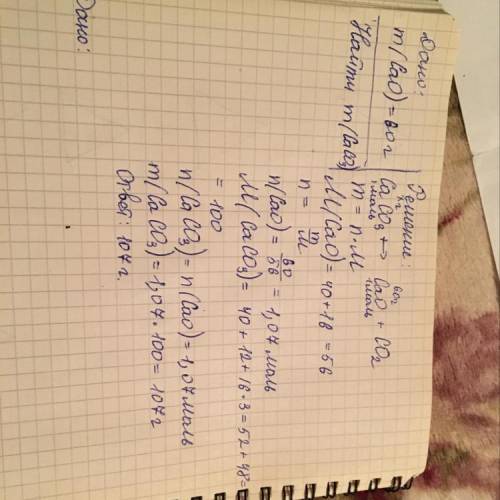 Дано:
m(CaO)=60г
Найти m(CaCO₃)
Решение:
xг 60г
CaCO₃ → CaO + CO₂
1моль 1моль
m = n·M
M(CaO) = 40+16 = 56
n = m/M
n(CaO) = 60/56 = 1,07 моль
M(CaCO₃) = 40+12+16·3=52+48=
= 100
n(CaCO₃) = n(CaO) = 1,07моль
m(CaCO₃) = 1,07·100 = 107г
Ответ: 107г.
Дано: